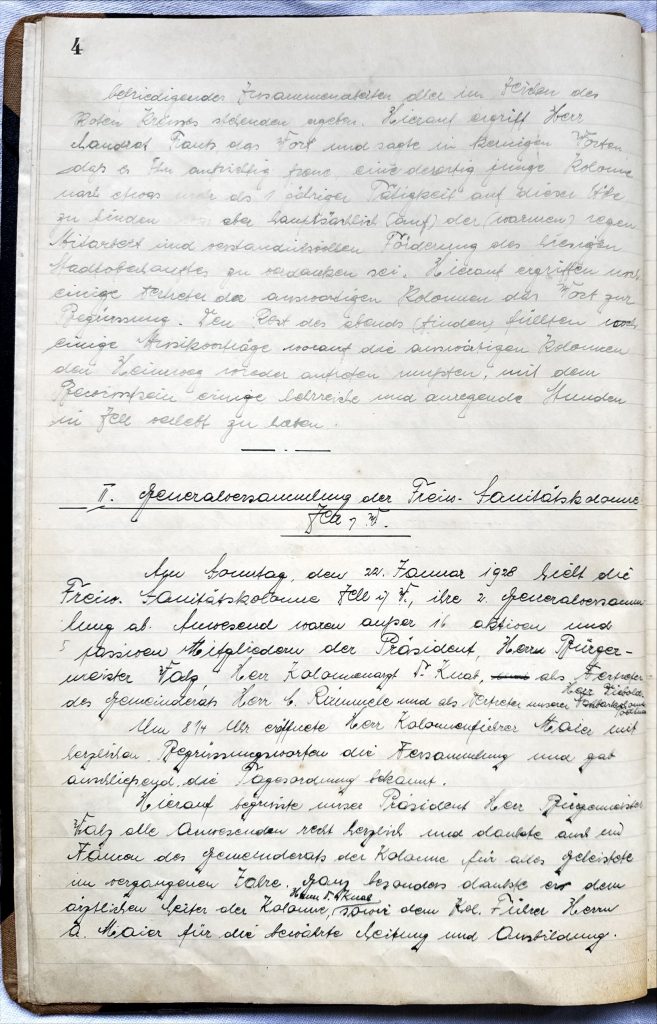 4
befriedigendes Zusammenarbeiten aller im Zeichen des
Roten Kreuzes stehenden ergeben. Hierauf ergriff Herr
Landrat das Wort und sagte in kernigen Worten
daß es Ihn aufrichtig freue, eine derartig junge Kolonne
nach etwas mehr als 1 jähriger Tätigkeit auf dieser Höhe
zu finden aber hauptsächlich (auf) der (warmen) regen
Mitarbeit und verständnisvollen Förderung des hiesigen
Stadtoberhauptes zu verdanken sei. Hierauf ergriffen noch
einige Vertreter der auswärtigen Kolonnen das Wort zur
Begrüssung. Den Rest des abends (finden) füllten noch
einige Musikvorträge worauf die auswärtigen Kolonnen
den Heimweg wieder antreten mußten, mit dem
Bewusstsein einige lehrreiche und anregende Stunden
in Zell verlebt zu haben.
II. Generalversammlung der Freiw. Sanitätskolonne
Zell i/ W.
Am Sonntag, den 22. Januar 1928 hielt die
Freiw. Sanitätskolonne Zell i/ W., ihre 2. Generalversamm
lung ab. Anwesend waren außer 16 aktiven und
5 passiven Mitgliedern der Präsident, Herrn Bürger-
meister Walz, Herr Kolonnenarzt Dr. Knab, als Vertreter
des Gemeinderats Herr C. Rümmele und als Vertreter unserer
Herr
Um 8 1/4 Uhr eröffnete Herr Kolonnenführer Maier mit
herzlichen Begrüssungsworten die Versammlung und gab
anschließend die Tagesordnung bekannt.
Hierauf begrüsste unser Präsident Herr Bürgermeister
Walz alle Anwesenden recht herzlich und dankte auch im
Namen des Gemeinderats der Kolonne für alles geleistete
im vergangenen Jahre. Ganz besonders dankte er dem
ärztlichen Leiter der Kolonne, Herrn Dr. Knab sowie dem Kol. Führer Herrn
A. Maier für die bewährte Leitung und Ausbildung.